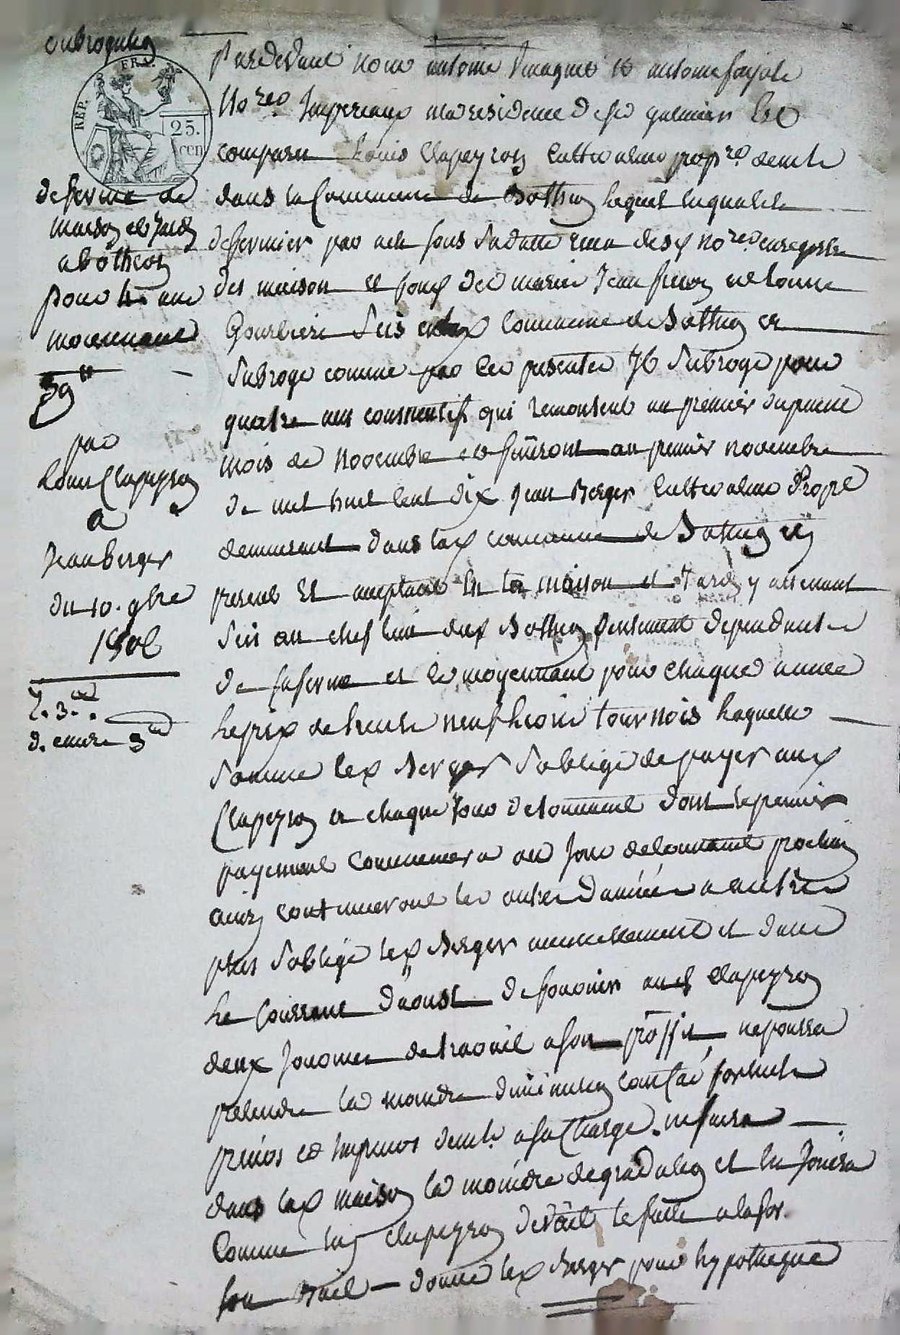 subrogation
REP. FRA.
25.
cen
de ferme de
maison et jardin
a bothéon
pour
moiennant
39#
par
Louis Clapeyron
a
Jean Berger
du 10. 9bre
1806
Pardevant nous antoine et antoine
No.res Imperiaux a la residence de St galmier Est
comparu Louis Clapeyron Cultivateur prop.re demt
dans la Commune de Bothéon lequel en qualité
de fermier par acte sous
des maison et fonds de marie Jean
commune de Bothéon
Subroge comme par les presentes Il Subroge pour
quatre ans consecutifs qui remontent au premier du present
mois de Novembre et finiront au premier novembre
de mil huit Cent dix Jean Berger Cultivateur Prop.e
demeurant dans lad commune de Bothéon ici
present Et acceptant En la maison et Jardin y attenant
Sis au chef lieu dud Bothéon dependant
de sa ferme et ce moyennant pour chaque année
le prix de trente neuf livres tournois laquelle
Somme led Berger s'oblige de payer aud
Clapeyron a chaque Jour de toussaint dont le premier
payement commencera au Jour de toussaint prochain
ainsi continueront les autres d'année a autre
plus s'oblige led Berger annuellement et dans
le Courrant d'aoust de fournir aud Clapeyron
deux Journées de travail a son proffit, ne pourra
pretendre la moindre diminution pour cas fortuits
prevus et Imprevus a sa Charge. ne faira
dans lad maison la moindre degradation et en Jouira
Comme led Clapeyron devait le faire
son Bail — donne led Berger pour hypotheque